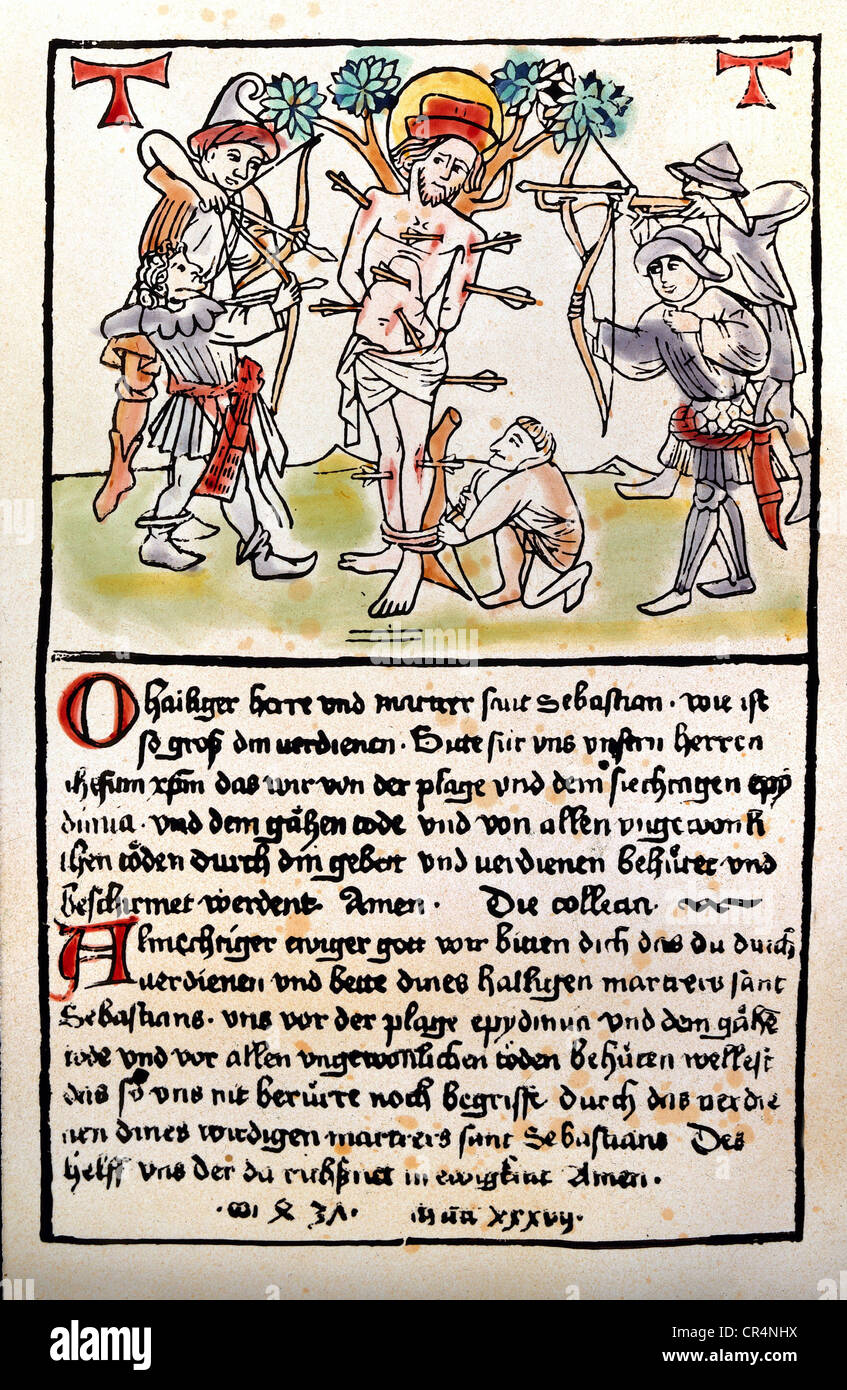 T T
O hailiger herre und martrer sant Sebastian · wie ist
so groß din verdienen · Bitte für vns vnsern herren
ihesum xpm das wir von der plage vnd dem siechtagen epy
dimia · vnd dem gähen tode vnd von allen vngewonli
chen töden durch din gebett vnd uerdienen behütet vnd
beschirmet werdent Amen · Die collecta ·
Almechtiger ewiger gott wir bitten dich das du durch
uerdienen vnd bette dines hailigen martrers sant
Sebastians · vns vor der plage epydimia vnd dem gähē
tode vnd vor allen vngewonlichen töden behüten wellest
das sÿ vns nit berürre noch begriffe durch das verdie
nen dines wirdigen martrers sant Sebastians Des
helff vns der du richßnet in ewigkait Amen ·
xxxvij ·
alamy
Image ID: CR4NHX
www.alamy.com